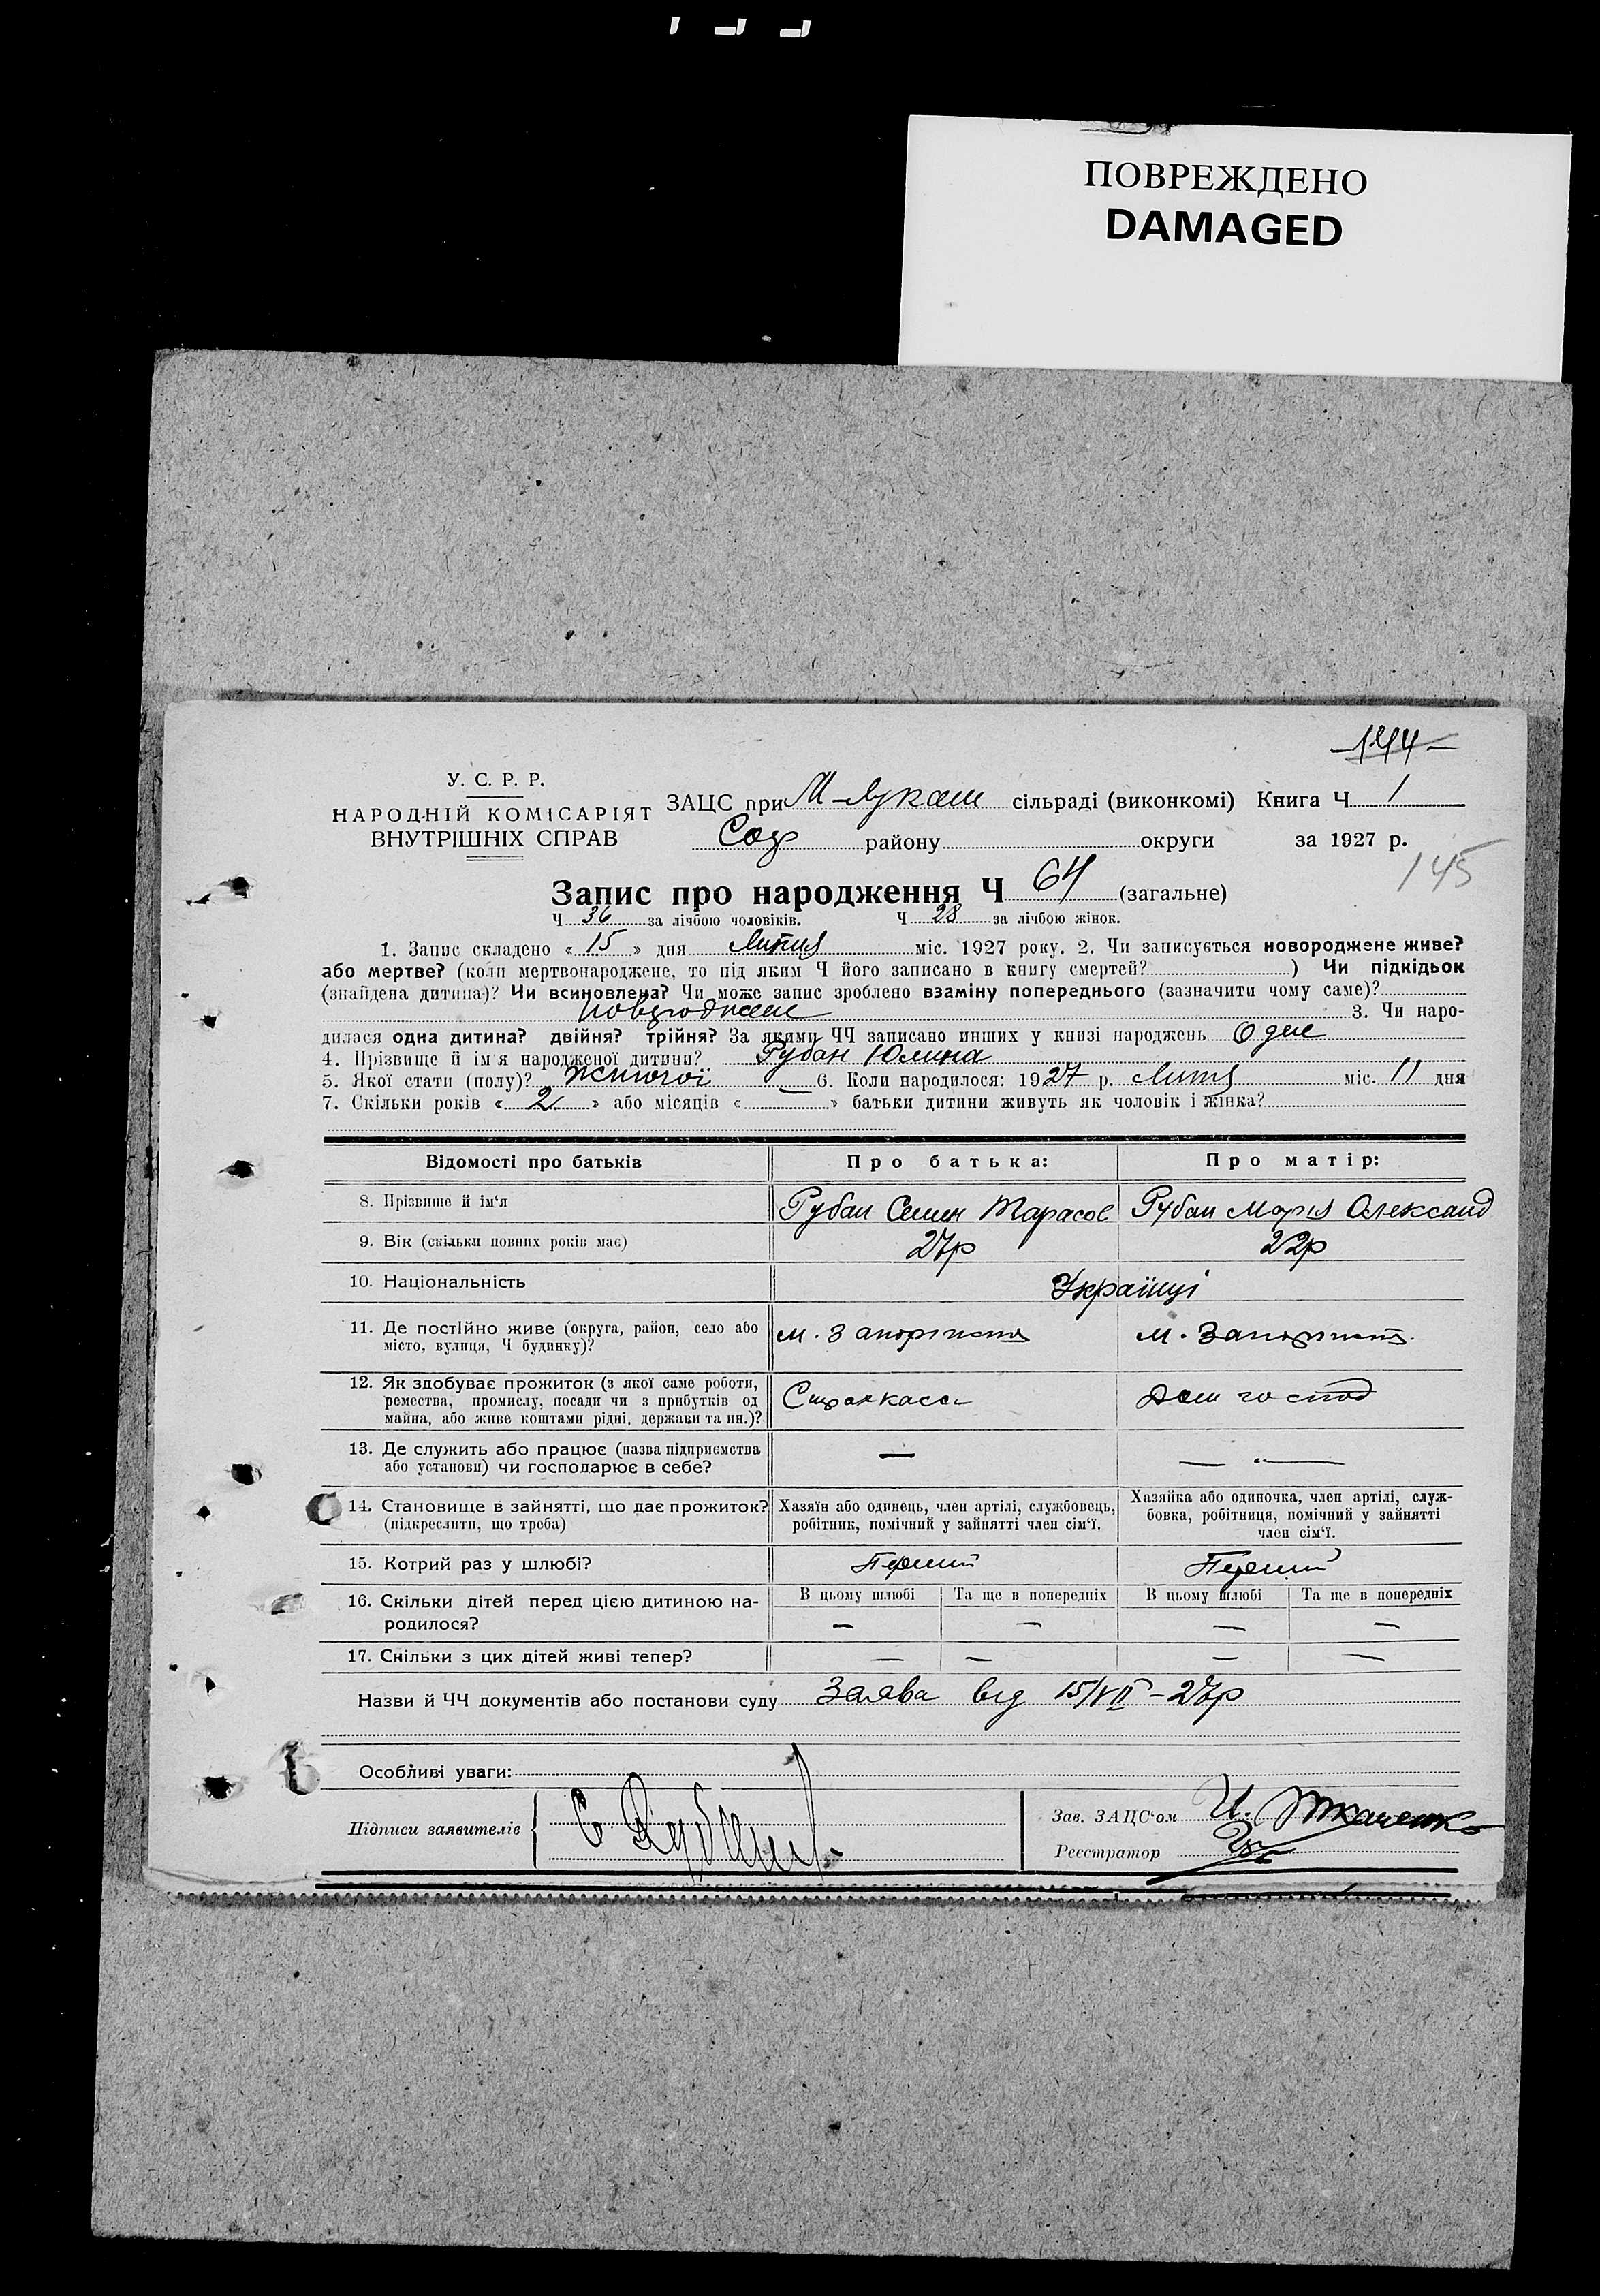 ПОВРЕЖДЕНО
DAMAGED
144
У. С. Р. Р.
НАРОДНІЙ КОМІСАРІЯТ
ВНУТРІШНІХ СПРАВ
ЗАЦС при М-Лукаш сільраді (виконкомі) Книга Ч 1
Соф району округи за 1927 р.
145
Запис про народження Ч 64 (загальне)
Ч 36 за лічбою чоловіків. Ч 28 за лічбою жінок.
1. Запис складено « 15 » дня Липня міс. 1927 року. 2. Чи записується новороджене живе?
або мертве? (коли мертвонароджене, то під яким Ч його записано в книгу смертей? ) Чи підкідьок
(знайдена дитина)? Чи всиновлена? Чи може запис зроблено взаміну попереднього (зазначити чому саме)?
3. Чи наро-
дилася одна дитина? двійня? трійня? За якими ЧЧ записано инших у книзі народжень Одне
4. Прізвище й ім'я народженої дитини? Рубан Юлина
5. Якої стати (полу)? Жіночої 6. Коли народилося: 1927 р. Липня міс. 11 дня
7. Скільки років « 2 » або місяців « » батьки дитини живуть як чоловік і жінка?
Відомості про батьків Про батька: Про матір:
8. Прізвище й ім'я Рубан Семен Тарасов Рубан Марія Олександ
9. Вік (скільки повних років має) 27р 22р
10. Національність Українці
11. Де постійно живе (округа, район, село або
місто, вулиця, Ч будинку)? м. Запоріжжя м. Запоріжжя
12. Як здобуває прожиток (з якої саме роботи,
ремества, промислу, посади чи з прибутків од
майна, або живе коштами рідні, держави та ин.)? Страхкаса Дом господ
13. Де служить або працює (назва підприємства
або установи) чи господарює в себе? — — " —
14. Становище в зайнятті, що дає прожиток?
(підкреслити, що треба)
Хазяїн або одинець, член артілі, службовець,
робітник, помічний у зайнятті член сім'ї.
Хазяйка або одиночка, член артілі, служ-
бовка, робітниця, помічний у зайнятті
член сім'ї.
15. Котрий раз у шлюбі? Перший Перший
В цьому шлюбі Та ще в попередніх В цьому шлюбі Та ще в попередніх
16. Скільки дітей перед цією дитиною на-
родилося? — — — —
17. Скільки з цих дітей живі тепер? — — — —
Назви й ЧЧ документів або постанови суду Заява від 15/VII – 27р
Особливі уваги:
Підписи заявителів С Рубан
Зав. ЗАЦС'ом И. Ткаченко
Реєстратор